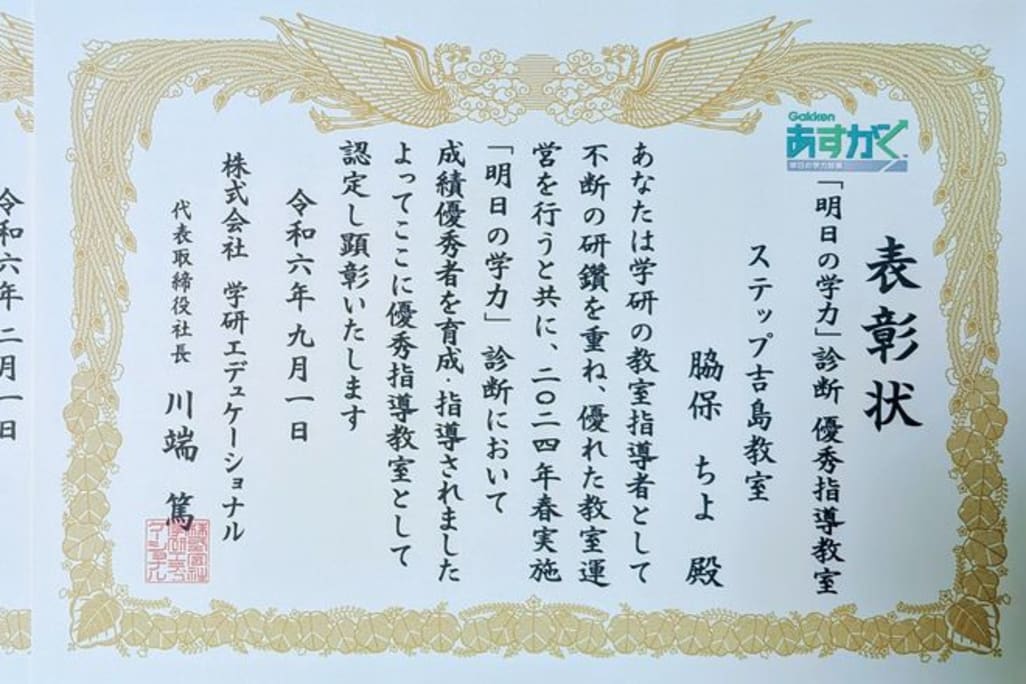 表彰状
Gakken
あすがく
明日の学力診断
「明日の学力」診断 優秀指導教室
ステップ吉島教室
脇保 ちよ 殿
あなたは学研の教室指導者として
不断の研鑽を重ね、優れた教室運
営を行うと共に、二〇二四年春実施
「明日の学力」診断において
成績優秀者を育成・指導されました
よってここに優秀指導教室として
認定し顕彰いたします
令和六年 九月一日
株式会社 学研エデュケーショナル
代表取締役社長 川端 篤
令和六年 二月一日